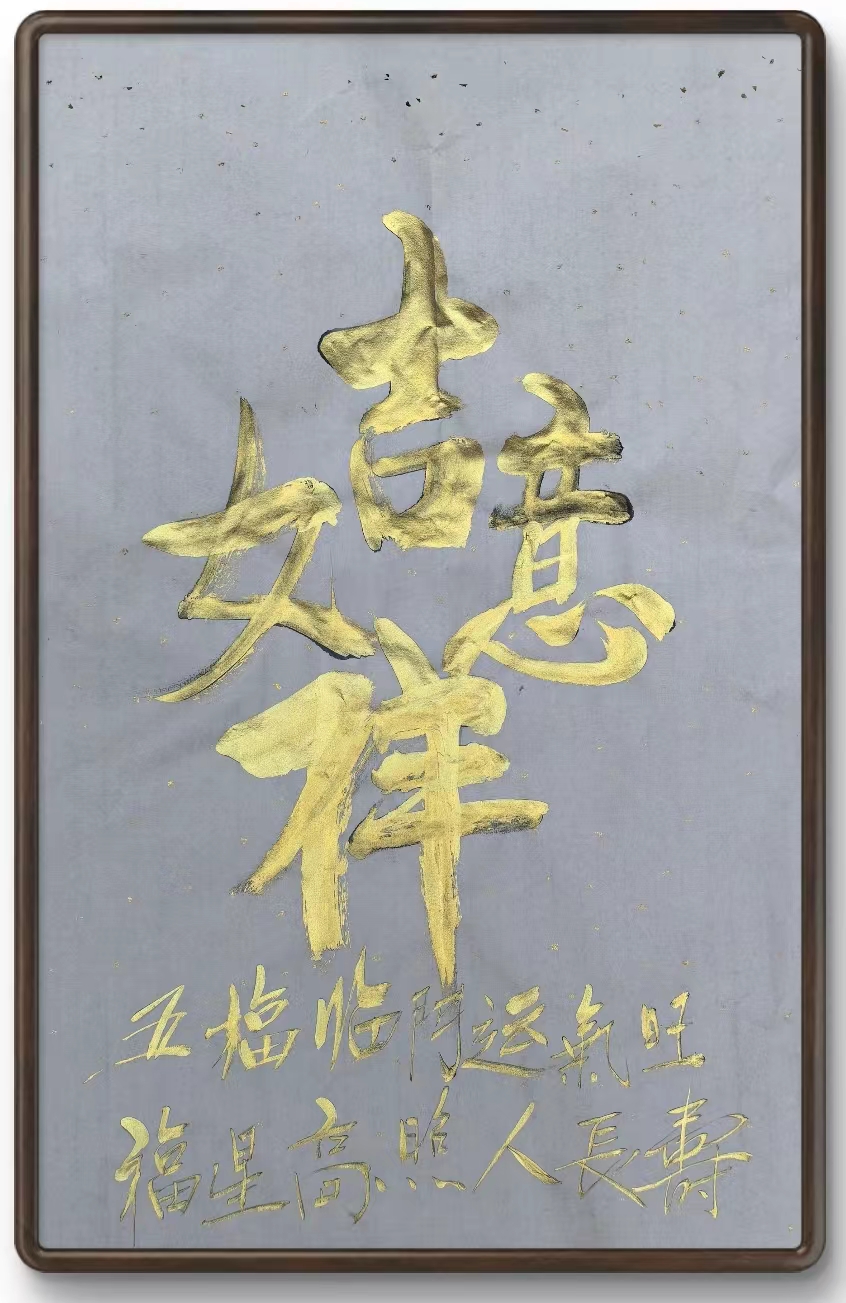 吉祥如意
五福临門运氣旺
福星高照人長壽